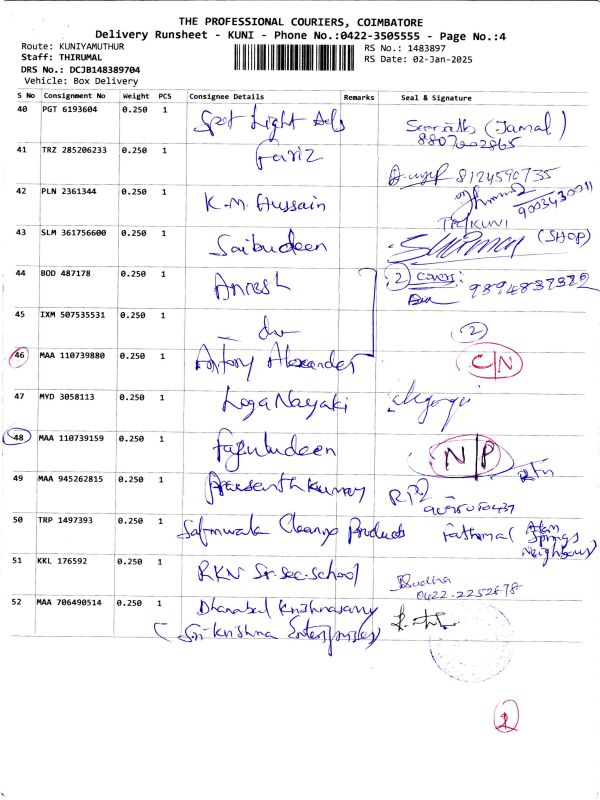 THE PROFESSIONAL COURIERS, COIMBATORE
Delivery Runsheet - KUNI - Phone No.:0422-3505555 - Page No.:4
Route: KUNIYAMUTHUR RS No.: 1483897
Staff: THIRUMAL RS Date: 02-Jan-2025
DRS No.: DCJB148389704
Vehicle: Box Delivery
S No Consignment No Weight PCS Consignee Details Remarks Seal & Signature
40 PGT 6193604 0.250 1 Spot Light Ads (Jamal)
41 TRZ 285206233 0.250 1 Fariz 8124590735
42 PLN 2361344 0.250 1 K.M. Hussain
43 SLM 361756600 0.250 1 Saibudeen (SHOP)
44 BOD 487178 0.250 1 2 covers:
45 IXM 507535531 0.250 1 do 2
46 MAA 110739880 0.250 1 Antony Alexander C/N
47 MYD 3058113 0.250 1 LogaNayaki
48 MAA 110739159 0.250 1 N/P
49 MAA 945262815 0.250 1
50 TRP 1497393 0.250 1 Cleaning Products
51 KKL 176592 0.250 1 RKN Sr.sec.school Budha
0422-2252878
52 MAA 706490514 0.250 1 Dhanabal Krishnasamy
(Sri Krishna Enterprises)